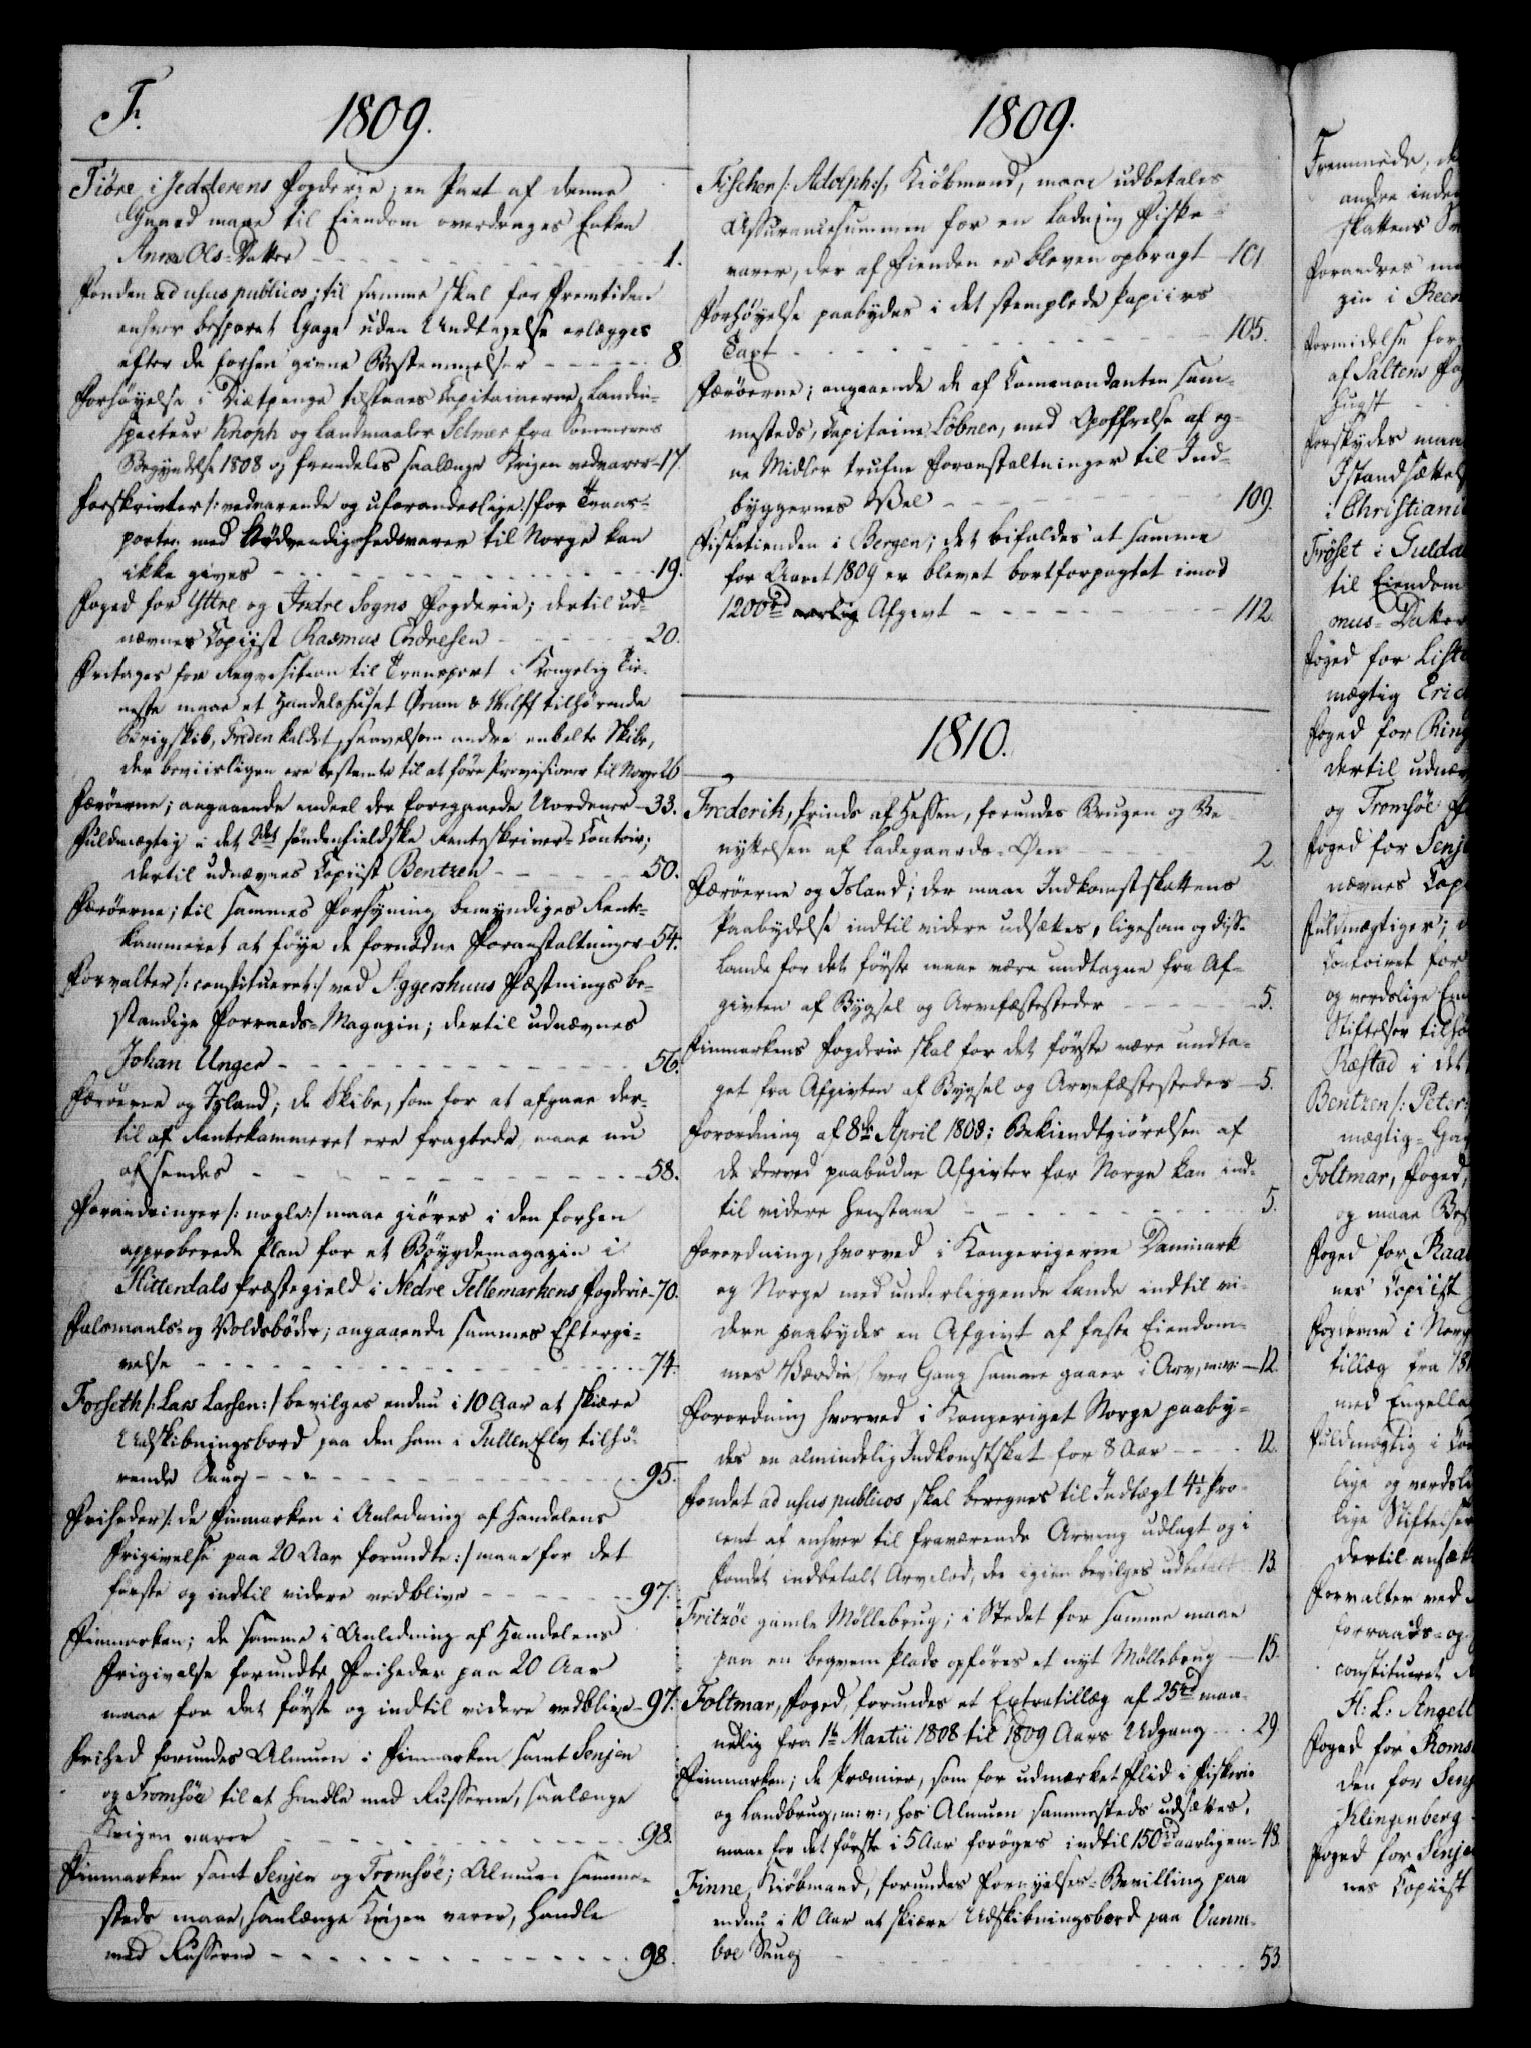 F.
1809.
Fiöre i Jedderens Fogderie; en Part af denne
Gaard maae til Eiendom overdrages Enken
Anna Ols-Datter - - - 1.
Fonden ad usus publicos; til samme skal for Fremtiden
enhver besparet Gage uden Undtagelse erlægges
efter de forhen givne Bestemmelser - - - 8
Forhöyelse i Diætpenge tilstaaes Capitainerne, Landin-
specteur Knoph og Landmaaler Selmer fra Sommerens
Begyndelse 1808 og fremdeles saalænge Krigen vedvarer - 17.
Forskrivter /: vedvarende og uforanderlige:/ for Trans-
porten med Nödvendighedsvarer til Norge kan
ikke gives - - - 19.
Foged for Yttre og Indre Sogns Fogderie; dertil ud-
nævnes Copiist Rasmus Endresen - - - 20.
Fritages for Reqvisition til Transport i Kongelig Tie-
neste maae et Handelshuset Örum & Wulff tilhörende
Brigskib, Freden kaldet, saavelsom andre enkelte Skibe,
der beviisligen ere bestemte til at före Provisioner til Norge 26
Færöerne; angaaende endeel der foregaaede Uordener - 33.
Fuldmægtig i det 2det söndenfieldske Renteskriver-Contoir;
dertil udnævnes Copiist Bentzen - - - 50.
Færöerne; til sammes Forsyning bemyndiges Rente-
kammeret at föye de fornödne Foranstaltninger - 54.
Forvalter /: constitueret:/ ved Aggershuus Fæstnings be-
standige Forraads-Magazin; dertil udnævnes
Johan Unger - - - 56.
Færöerne og Island; de Skibe, som for at afgaae der-
til af Rentekammeret ere fragtede, maae nu
afsendes - - - 58.
Forandringer /: nogle:/ maae giöres i den forhen
approberede Plan for et Böygdemagazin i
Hitterdals Præstegield i Nedre Tellemarkens Fogderie - 70.
Faldsmaals- og Voldsböder; angaaende sammes Eftergi-
velse - - - 74.
Forseth /: Lars Larsen:/ bevilges endnu i 10 Aar at skiære
Udskibningsbord paa den ham i Tullen Elv tilhö-
rende Saug - - - 95.
Friheder /: de Finmarken i Anledning af Handelens
Frigivelse paa 20 Aar forundte:/ maae for det
förste og indtil videre vedblive - - - 97.
Finmarken; de samme i Anledning af Handelens
Frigivelse forundte Friheder paa 20 Aar
maae for det förste og indtil videre vedblive - 97.
Frihed forundes Almuen i Finmarken samt Senjen
og Tromsöe til at handle med Russerne, saalænge
Krigen varer - - - 98.
Finmarken samt Senjen og Tromsöe; Almuen samme-
steds maae, saalænge Krigen varer, handle
med Russerne - - - 98.
1809.
Fischer /: Adolph:/, Kiöbmand, maae udbetales
Assurancesummen for en Ladning Fiske-
varer, der af Fienden er bleven opbragt - 101
Forhöyelse paabydes i det stemplede Papiirs
Taxt - - - 105.
Færöerne; angaaende de af Commandanten sam-
mesteds, Capitaine Löbner, med Opoffrelse af eg-
ne Midler trufne Foranstaltninger til Ind-
byggernes Vel - - - 109.
Fisketienden i Bergen; det bifaldes at samme
for Aaret 1809 er blevet bortforpagtet imod
1200 rd aarlig Afgivt - - - 112.
1810.
Frederik, Prinds af Hessen, forundes Brugen og Be-
nyttelsen af Ladegaards-Öen - - - 2.
Færöerne og Island; der maae Indkomstskattens
Paabydelse indtil videre udsættes, ligesom og disse
Lande for det förste maae være undtagne fra Af-
givten af Bygsel og Arvefæstesteder - - - 5.
Finmarkens Fogderie skal for det förste være undta-
get fra Afgivten af Bygsel og Arvefæstesteder - 5.
Forordning af 8de April 1808; Bekiendtgiörelsen af
de derved paabudne Afgivter for Norge kan ind-
til videre henstaae - - - 5.
Forordning, hvorved i Kongerigerne Danmark
og Norge med underliggende Lande indtil vi-
dere paabydes en Afgivt af faste Eiendom-
mes Værdie, hver Gang samme gaaer i Arv, m: v: - 12.
Forordning hvorved i Kongeriget Norge paaby-
des en almindelig Indkomstskat for 8 Aar - - - 12.
Fondet ad usus publicos skal beregnes til Indtægt 4 1/6 Pro-
cent af enhver til fraværende Arving udlagt og i
Fondet indbetalt Arvelod, der igien bevilges udbetalt - 13.
Fritzöe gamle Möllebrug; i Stedet for samme maae
paa en beqvem Plads opföres et nyt Möllebrug - 15.
Foltmar, Foged, forundes et Extratillæg af 25 rd maa-
nedlig fra 1te Martii 1808 til 1809 Aars Udgang - 29.
Finmarken; de Præmier, som for udmærket Flid i Fiskerie
og Landbrug, m: v:, hos Almuen sammesteds udsættes,
maae for det förste i 5 Aar foröges indtil 150 rd aarligen - 48.
Finne, Kiöbmand, forundes Fornyelses-Bevilling paa
endnu i 10 Aar at skiære Udskibningsbord paa Vanne-
boe Saug - - - 53.
Fremmede, de
andre inde
skattens
Forandres
zin i
Formidelse for
af Saltens Fog
Forskydes maa
Istandsættels
i Christiani
Fröset i Gulda
til Eiendom
mus-Datter
Foged for Liste
mægtig Eric
Foged for Ring
dertil udnæv
og Tromsöe
Foged for Senje
nævnes Copi
Fuldmægtiger;
Contoiret for
og verdslige
Stiftelser tilhö
Ræstad i det
Bentzen /: Peter
mægtig-Gag
Foltmar, Foged,
og maae
Foged for Raa
nes Copiist
Fogderne i Norg
tillæg fra 18
med Engella
Fuldmægtig i Con
lige og verdsli
lige Stiftelser
dertil ansætt
Forvalter ved
Forraads- og
constitueret
H: L: Angell
Foged for Roms
den for Senj
Klingenberg
Foged for Senje
nes Copiist